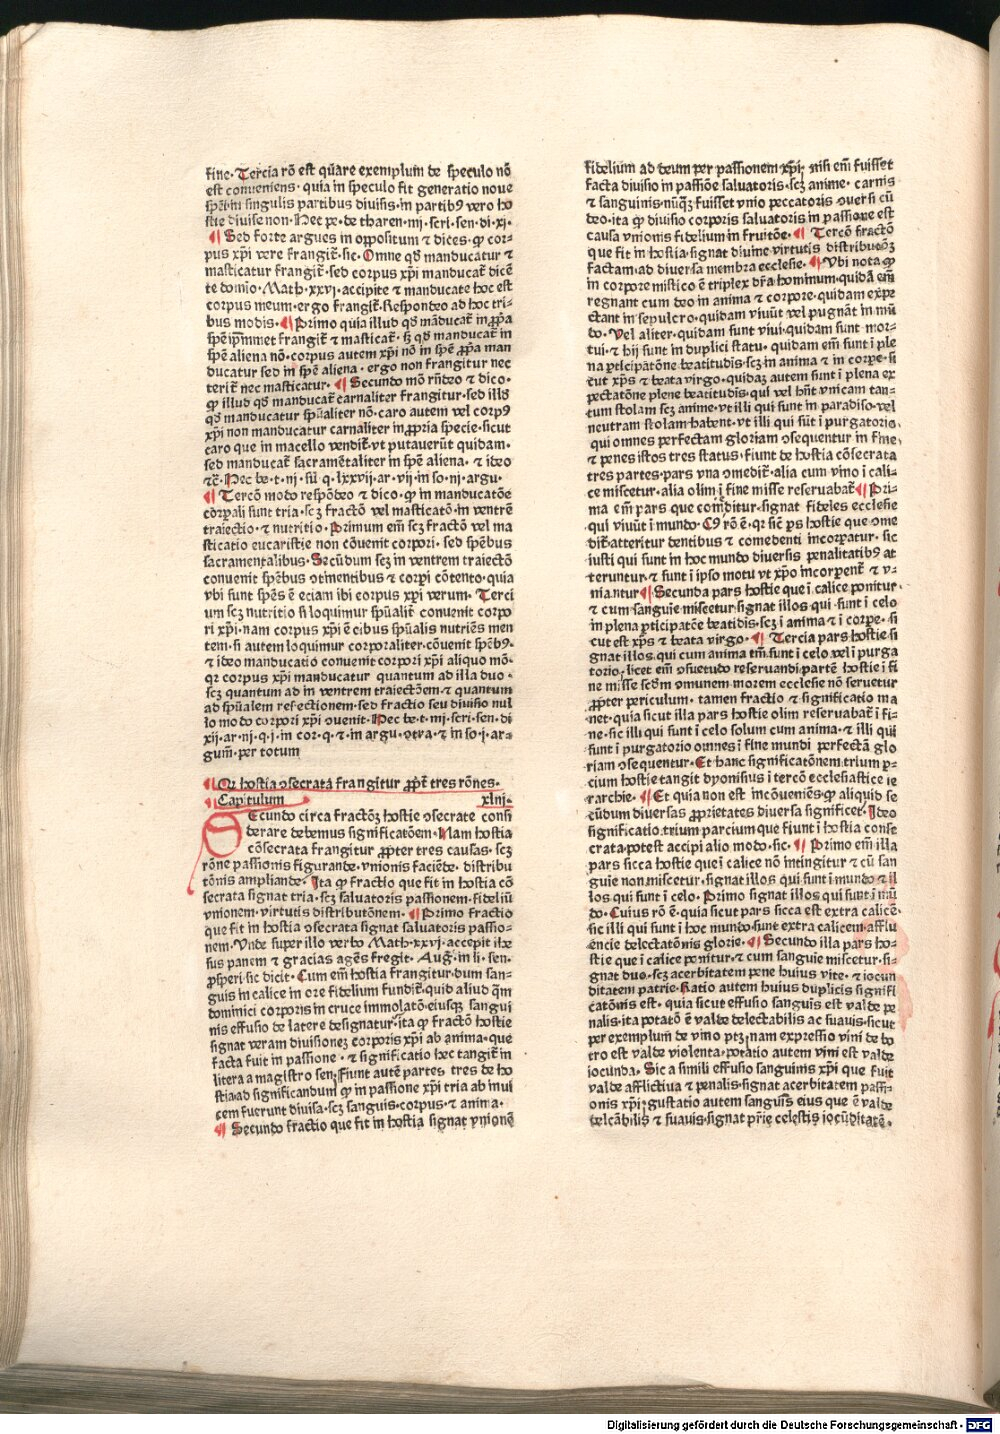 fine. Tercia rõ est quare exemplum de speculo nõ
est conueniens. quia in speculo fit generatio noue
spẽi in singulis partibus diuisis. in partibꝰ vero ho
stie diuise non. Hec pe. de tharen. iiij. scri. sen. di. xj.
¶ Sed forte argues in oppositum ⁊ dices. ꝙ cor⸗
pus xp̃i vere frangit̃. sic. Omne qđ manducatur ⁊
masticatur frangit̃. sed corpus xp̃i manducat̃ dicẽ
te domio. Math. xxvj. accipite ⁊ manducate hoc est
corpus meum. ergo frangit̃. Respondeo ad hoc tri⸗
bus modis. ¶ Primo quia illud qđ mãducat̃ in ꝓp̃a
spẽ ip̃mmet frangit̃ ⁊ masticat̃. sꝫ qđ manducat̃ in
spẽ aliena nõ. corpus autem xp̃i nõ in spẽ ꝓp̃a man
ducatur sed in spẽ aliena. ergo non frangitur nec
terit̃ nec masticatur. ¶ Secundo mõ rñdeo ⁊ dico.
ꝙ illud qđ manducat̃ carnaliter frangitur. sed illđ
qđ manducatur spũaliter nõ. caro autem vel corpꝰ
xp̃i non manducatur carnaliter in ꝓpria specie. sicut
caro que in macello vendit̃. vt putauerũt quidam.
sed manducat̃ sacramẽtaliter in spẽ aliena. ⁊ ideo
⁊c̃. Hec be. t. iij. sũ. q. lxxvij. ar. vij. in so. iij. argu.
¶ Tercõ modo respõdeo ⁊ dico. ꝙ in manducatõe
corpali sunt tria. scꝫ fractõ vel masticatõ. in ventrẽ
traiectio. ⁊ nutritio. Primum em̃ scꝫ fractõ vel ma
sticatio eucaristie non cõuenit corpori. sed spẽbus
sacramentalibus. Secũdum scꝫ in ventrem traiectõ
conuenit spẽbus ɔtinentibus ⁊ corpi cõtento. quia
vbi sunt spẽs ẽ eciam ibi corpus xp̃i verum. Terci
um scꝫ nutritio si loquimur spũalit̃ conuenit corpo
ri xp̃i. nam corpus xp̃i ẽ cibus spũalis nutriẽs men
tem. si autem loquimur corporaliter. cõuenit spẽbꝰ.
⁊ ideo manducatio conuenit corpori xp̃i aliquo mõ.
qr corpus xp̃i manducatur quantum ad illa duo.
scꝫ quantum ad in ventrem traiectõem. ⁊ quantum
ad spũalem refectionem. sed fractio seu diuisio nul
lo modo corpori xp̃i ɔuenit. Hec be. t. iiij. scri. sen. di
xij. ar. iij. q. j. in cor. q. ⁊ in argu. ɔtra. ⁊ in so. j. ar⸗
gum̃. per totum
¶ Qr hostia ɔsecrata frangitur ꝓpt̃ tres rões.
¶ Capitulum xliij.
Secundo circa fractõꝫ hostie ɔsecrate consi
derare debemus significatõem. Nam hostia
cõsecrata frangitur ꝓpter tres causas. scꝫ
rõne passionis figurande. vnionis faciẽde. distribu
tõnis ampliande. Ita ꝙ fractio que fit in hostia cõ
secrata signat tria. scꝫ saluatoris passionem. fideliũ
vnionem. virtutis distributõnem. ¶ Primo fractio
que fit in hostia ɔsecrata signat saluatoris passio⸗
nem. Vnde super illo verbo Math. xxvj. accepit ihe
sus panem ⁊ gracias agẽs fregit. Aug̃. in li. sen.
ꝓsperi. sic dicit. Cum em̃ hostia frangitur. dum san⸗
guis in calice in ore fidelium fundit̃. quid aliud qm̃
dominici corporis in cruce immolatõ. eiusqꝫ sangui
nis effusio de latere designatur. ita ꝙ fractõ hostie
signat veram diuisionez corporis xp̃i ab anima. que
facta fuit in passione. ⁊ significatio hec tangit̃ in
litera a magistro sen. Fiunt autẽ partes tres de ho
stia. ad significandum ꝙ in passione xp̃i tria ab inui
cem fuerunt diuisa. scꝫ sanguis. corpus. ⁊ anima.
¶ Secundo fractio que fit in hostia signat vnionẽ
fidelium ad deum per passionem xp̃i. nisi em̃ fuisset
facta diuisio in passiõe saluatoris. scꝫ anime. carnis
⁊ sanguinis. nũqꝫ fuisset vnio peccatoris ɔuersi cũ
deo. ita ꝙ diuisio corporis saluatoris in passione est
causa vnionis fidelium in fruitõe. ¶ Tercõ fractõ
que fit in hostia signat diuine virtutis distributõꝫ
factam. ad diuersa membra ecclesie. ¶ Vbi nota ꝙ
in corpore mistico ẽ triplex dr̃a hominum. quidã em̃
regnant cum deo in anima ⁊ corpore. quidam expe
ctant in sepulcro. quidam viuũt vel pugnãt in mũ
do. Vel aliter. quidam sunt viui. quidam sunt mor⸗
tui. ⁊ hij sunt in duplici statu. quidam em̃ sunt ĩ ple
na ꝑticipatõne beatitudis. scꝫ in anima ⁊ in corpe. si
cut xp̃s ⁊ beata virgo. quidaꝫ autem sunt ĩ plena ex
pectatõne plene beatitudis. qui vel hñt vnicam tan⸗
tum stolam scꝫ anime. vt illi qui sunt in paradiso. vel
neutram stolam habent. vt illi qui sũt ĩ purgatorio.
qui omnes perfectam gloriam ɔsequentur in fine.
⁊ penes istos tres status. fiunt de hostia cõsecrata
tres partes. pars vna ɔmedit̃. alia cum vino ĩ cali⸗
ce miscetur. alia olim ĩ fine misse reseruabat̃. ¶ Pri⸗
ma em̃ pars que comeditur. signat fideles ecclesie
qui viuũt ĩ mundo. Cꝰ rõ ẽ. qr sic̃ ꝑs hostie que ɔme
dit̃. atteritur dentibus ⁊ comedenti incorꝑatur. sic
iusti qui sunt in hoc mundo diuersis penalitatibꝰ at
teruntur. ⁊ sunt ĩ ipso motu vt xp̃o incorpent̃ ⁊ v⸗
niantur. ¶ Secunda pars hostie que ĩ calice ponitur
⁊ cum sanguie miscetur. signat illos qui sunt ĩ celo
in plena ꝑticipatõe beatidis. scꝫ ĩ anima ⁊ ĩ corpe. si
cut est xp̃s ⁊ beata virgo. ¶ Tercia pars hostie si
gnat illos. qui cum anima tm̃ sunt ĩ celo vel ĩ purga
torio. licet em̃ ɔsuetudo reseruandi partẽ hostie ĩ fi
ne misse scđm ɔmunem morem ecclesie nõ seruetur
ꝓpter periculum. tamen fractio ⁊ significatio ma
net. quia sicut illa pars hostie olim reseruabat̃ ĩ fi⸗
ne. sic illi qui sunt ĩ celo solum cum anima. ⁊ illi qui
sunt ĩ purgatorio omnes ĩ fine mundi perfectã glo
riam ɔsequentur. Et hanc significatõnem trium ꝑ⸗
cium hostie tangit dyonisius ĩ tercõ ecclesiastice ie
rarchie. ¶ Et quia non est incõueniẽs. ꝙ aliquid se
cũdum diuersas ꝓprietates diuersa significet. Ideo
significatio. trium parcium que fiunt ĩ hostia conse
crata. potest accipi alio modo. sic. ¶ Primo em̃ illa
pars sicca hostie que ĩ calice nõ intingitur ⁊ cũ san
guie non miscetur. signat illos qui sunt ĩ mundo ⁊ il
los qui sunt ĩ celo. Primo signat illos qui sunt ĩ mũ
do. Cuius rõ ẽ. quia sicut pars sicca est extra calicẽ.
sic illi qui sunt ĩ hoc mundo. sunt extra calicem afflu
encie delectatõnis glorie. ¶ Secundo illa pars ho⸗
stie que ĩ calice ponitur. ⁊ cum sanguie miscetur. si⸗
gnat duo. scꝫ acerbitatem pene huius vite. ⁊ iocun
ditatem patrie. Ratio autem huius duplicis signifi
catõnis est. quia sicut effusio sanguis est valde pe
nalis. ita potatõ ẽ valde delectabilis ac suauis. sicut
per exemplum̃ de vino ptꝫ. nam expressio vini de bo
tro est valde violenta. potatio autem vini est valde
iocunda. Sic a simili effusio sanguinis xp̃i que fuit
valde afflictiua ⁊ penalis. signat acerbitatem passi⸗
onis xp̃i. gustatio autem sanguis eius que ẽ valde
delcãbilis ⁊ suauis. signat pr̃ie celestis iocũditatẽ.
Digitalisierung gefördert durch die Deutsche Forschungsgemeinschaft - DFG